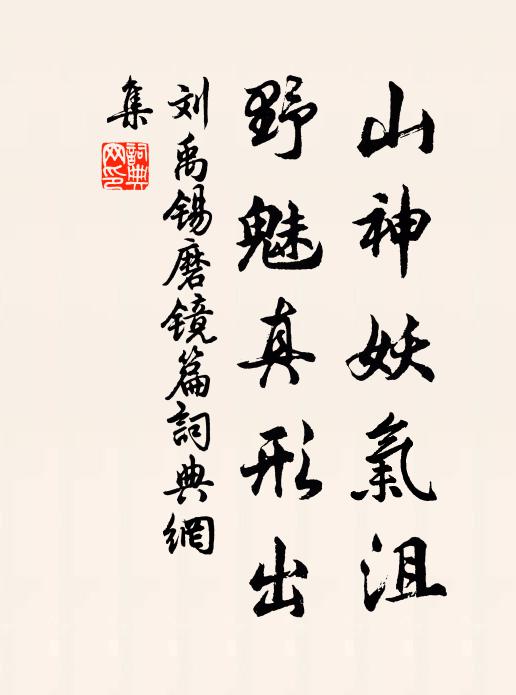 山神妖氣沮
野魅真形出
刘禹锡磨镜篇詞典網
集
詞典網印